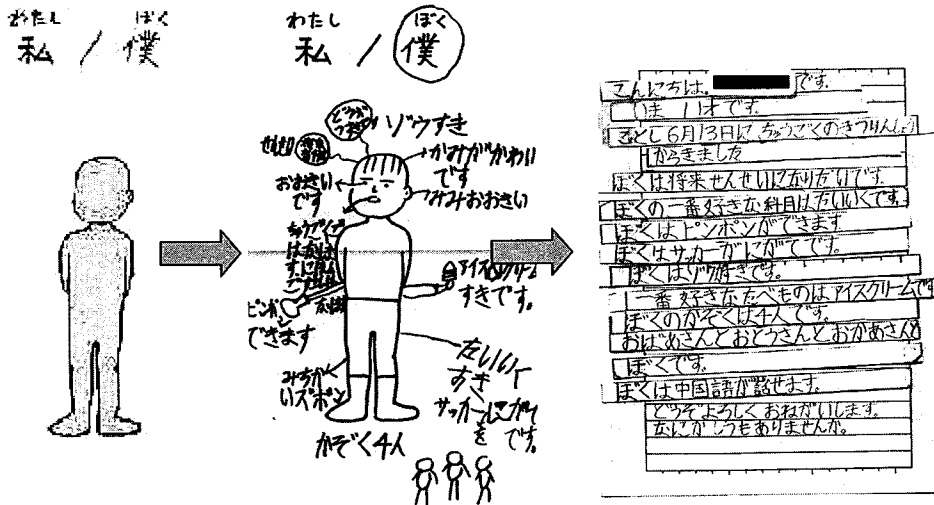 わたし ぼく
私 / 僕
わたし ぼく
私 / 僕
ゾウすき
かみがかわいいです
みみおおきい
おおきいです
アイスクリーム
すきです。
ピンポン
できます
みじかいズボン
たいいく
すき
サッカーにがて
です。
かぞく4人
こんにちは。です。
いま 11才です。
ことし6月13日に、ちゅうごくのきつりんしょう
からきました
ぼくは将来せんせいになりたいです。
ぼくの一番好きな科目はたいいくです。
ぼくはピンポンができます
ぼくはサッカーがにがてです。
ぼくはゾウ好きです。
一番好きなたべものはアイスクリームです
ぼくのかぞくは4人です。
おばあさんとおとうさんとおかあさんと
ぼくです。
ぼくは中国語が話せます。
どうぞよろしくおねがいします。
なにかしつもありませんか。